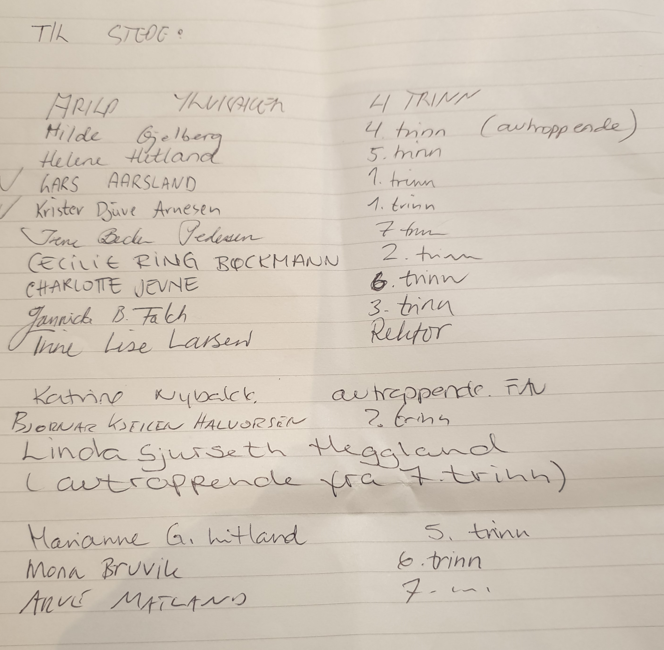 TIL STEDE:
ARILD 4 TRINN
Hilde Gjelberg 4 trinn (avtroppende)
Helene Hitland 5. trinn
LARS AARSLAND 1. trinn
Krister Djuve Arnesen 1. trinn
Irene Becker Pedersen 7 trinn
CECILIE RING BØCKMANN 2. trinn
CHARLOTTE JEVNE 6. trinn
Jannich B. Falch 3. trinn
Trine Lise Larsen Rektor
Katrine avtroppende. FAU
BJØRNAR HALVORSEN 2. trinn
Linda Sjurseth Heggland
(avtroppende fra 7. trinn)
Marianne G. Hitland 5. trinn
Mona Bruvik 6. trinn
ARVE MATLAND 7.